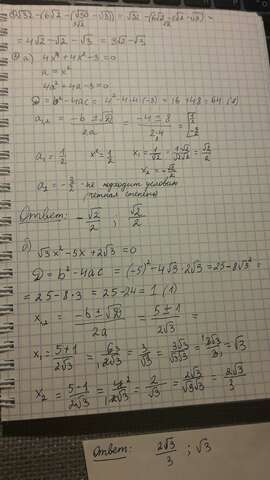 2√32 - (6√2 - (√30 - √3)) = √32 - (6√2 - √2 - √3) =
= 4√2 - √2 - √3 = 3√2 - √3
а) 4x⁴ + 4x² - 3 = 0
a = x²
4a² + 4a - 3 = 0
D = b² - 4ac = 4² - 4·4·(-3) = 16 + 48 = 64
a₁,₂ = (-b ± √D)/2a = (-4 ± 8)/(2·4) =
a₁ = 1/2 x² = 1/2 x₁ = 1/√2 = √2/2
x₂ = -√2/2
a₂ = -3/2 - не подходит условию
(четная степень)
Ответ: -√2/2 ; √2/2
б)
√3x² - 5x + 2√3 = 0
D = b² - 4ac = (-5)² - 4√3·2√3 = 25 - 8√3² =
= 25 - 8·3 = 25 - 24 = 1 (1)
x₁,₂ = (-b ± √D)/2a = (5 ± 1)/2√3 =
x₁ = (5+1)/2√3 = 6/2√3 = 3/√3 = 3√3/√3√3 = 3√3/3 = √3
x₂ = (5-1)/2√3 = 4/2√3 = 2/√3 = 2√3/√3√3 = 2√3/3
Ответ: 2√3/3 ; √3